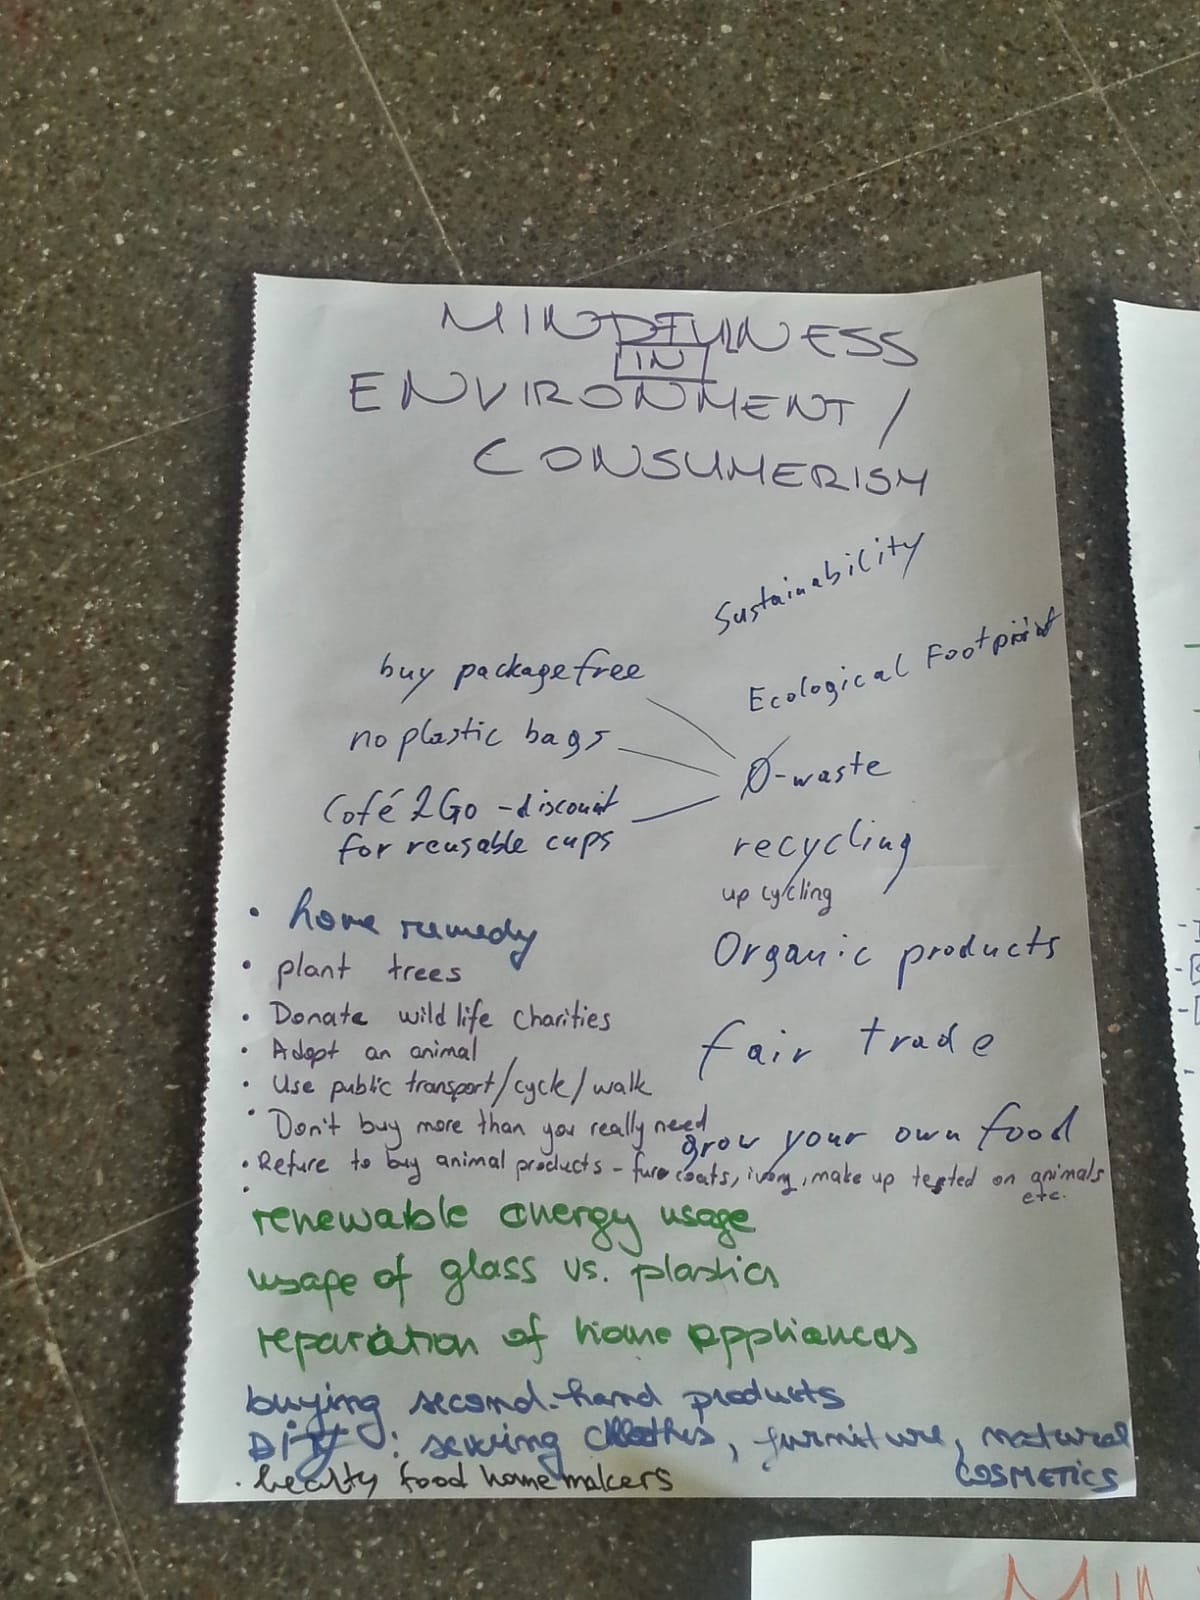 MINDFULNESS
IN
ENVIRONMENT /
CONSUMERISM
Sustainability
Ecological Footprint
buy packagefree
no plastic bags
Café 2Go - discount
for reusable cups
Ø-waste
recycling
up cycling
Organic products
fair trade
grow your own food
• home remedy
• plant trees
• Donate wild life charities
• Adopt an animal
• Use public transport/cycle/walk
• Don't buy more than you really need
• Refure to buy animal products - fure coats, ivory, make up tested on animals
etc.
renewable energy usage
usage of glass vs. plastics
reparation of home appliances
buying second-hand products
DIY: sewing clothes, furniture, natural
COSMETICS
• healty food home makers
MIN